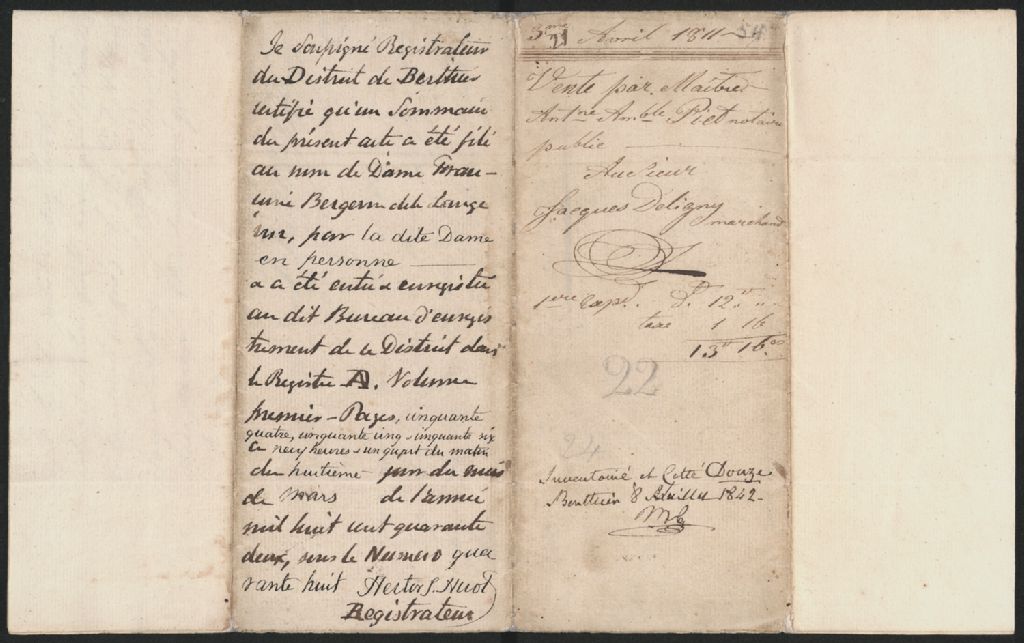 Je soussigné Registrateur
du District de Berthier
certifie qu'un Sommaire
du présent acte a été filé
au nom de Dame Fran-
 Bergem dit Lange
vin, par la dite Dame
en personne
& a été entré & enregistré
au dit Bureau d'enregis
trement de ce District dans
le Registre A. Volume
premier - Pages, cinquante
quatre, cinquante cinq & cinquante six
a neuf heures & un quart du matin
du huitième jour du mois
de mars de l'année
mil huit cent quarante
deux, sous le Numero qua
rante huit Hector S. Huot
Registrateur
21 Avril 1811 54
Vente par Maitre
Antne Amble Piet notaire
public
Au Sieur
Jacques Deligny
marchand
1ere Expd. 12
taxe 1 16
13 16
22
24
Inventorié et Cotté Douze
Berthier 8 Juillet 1842